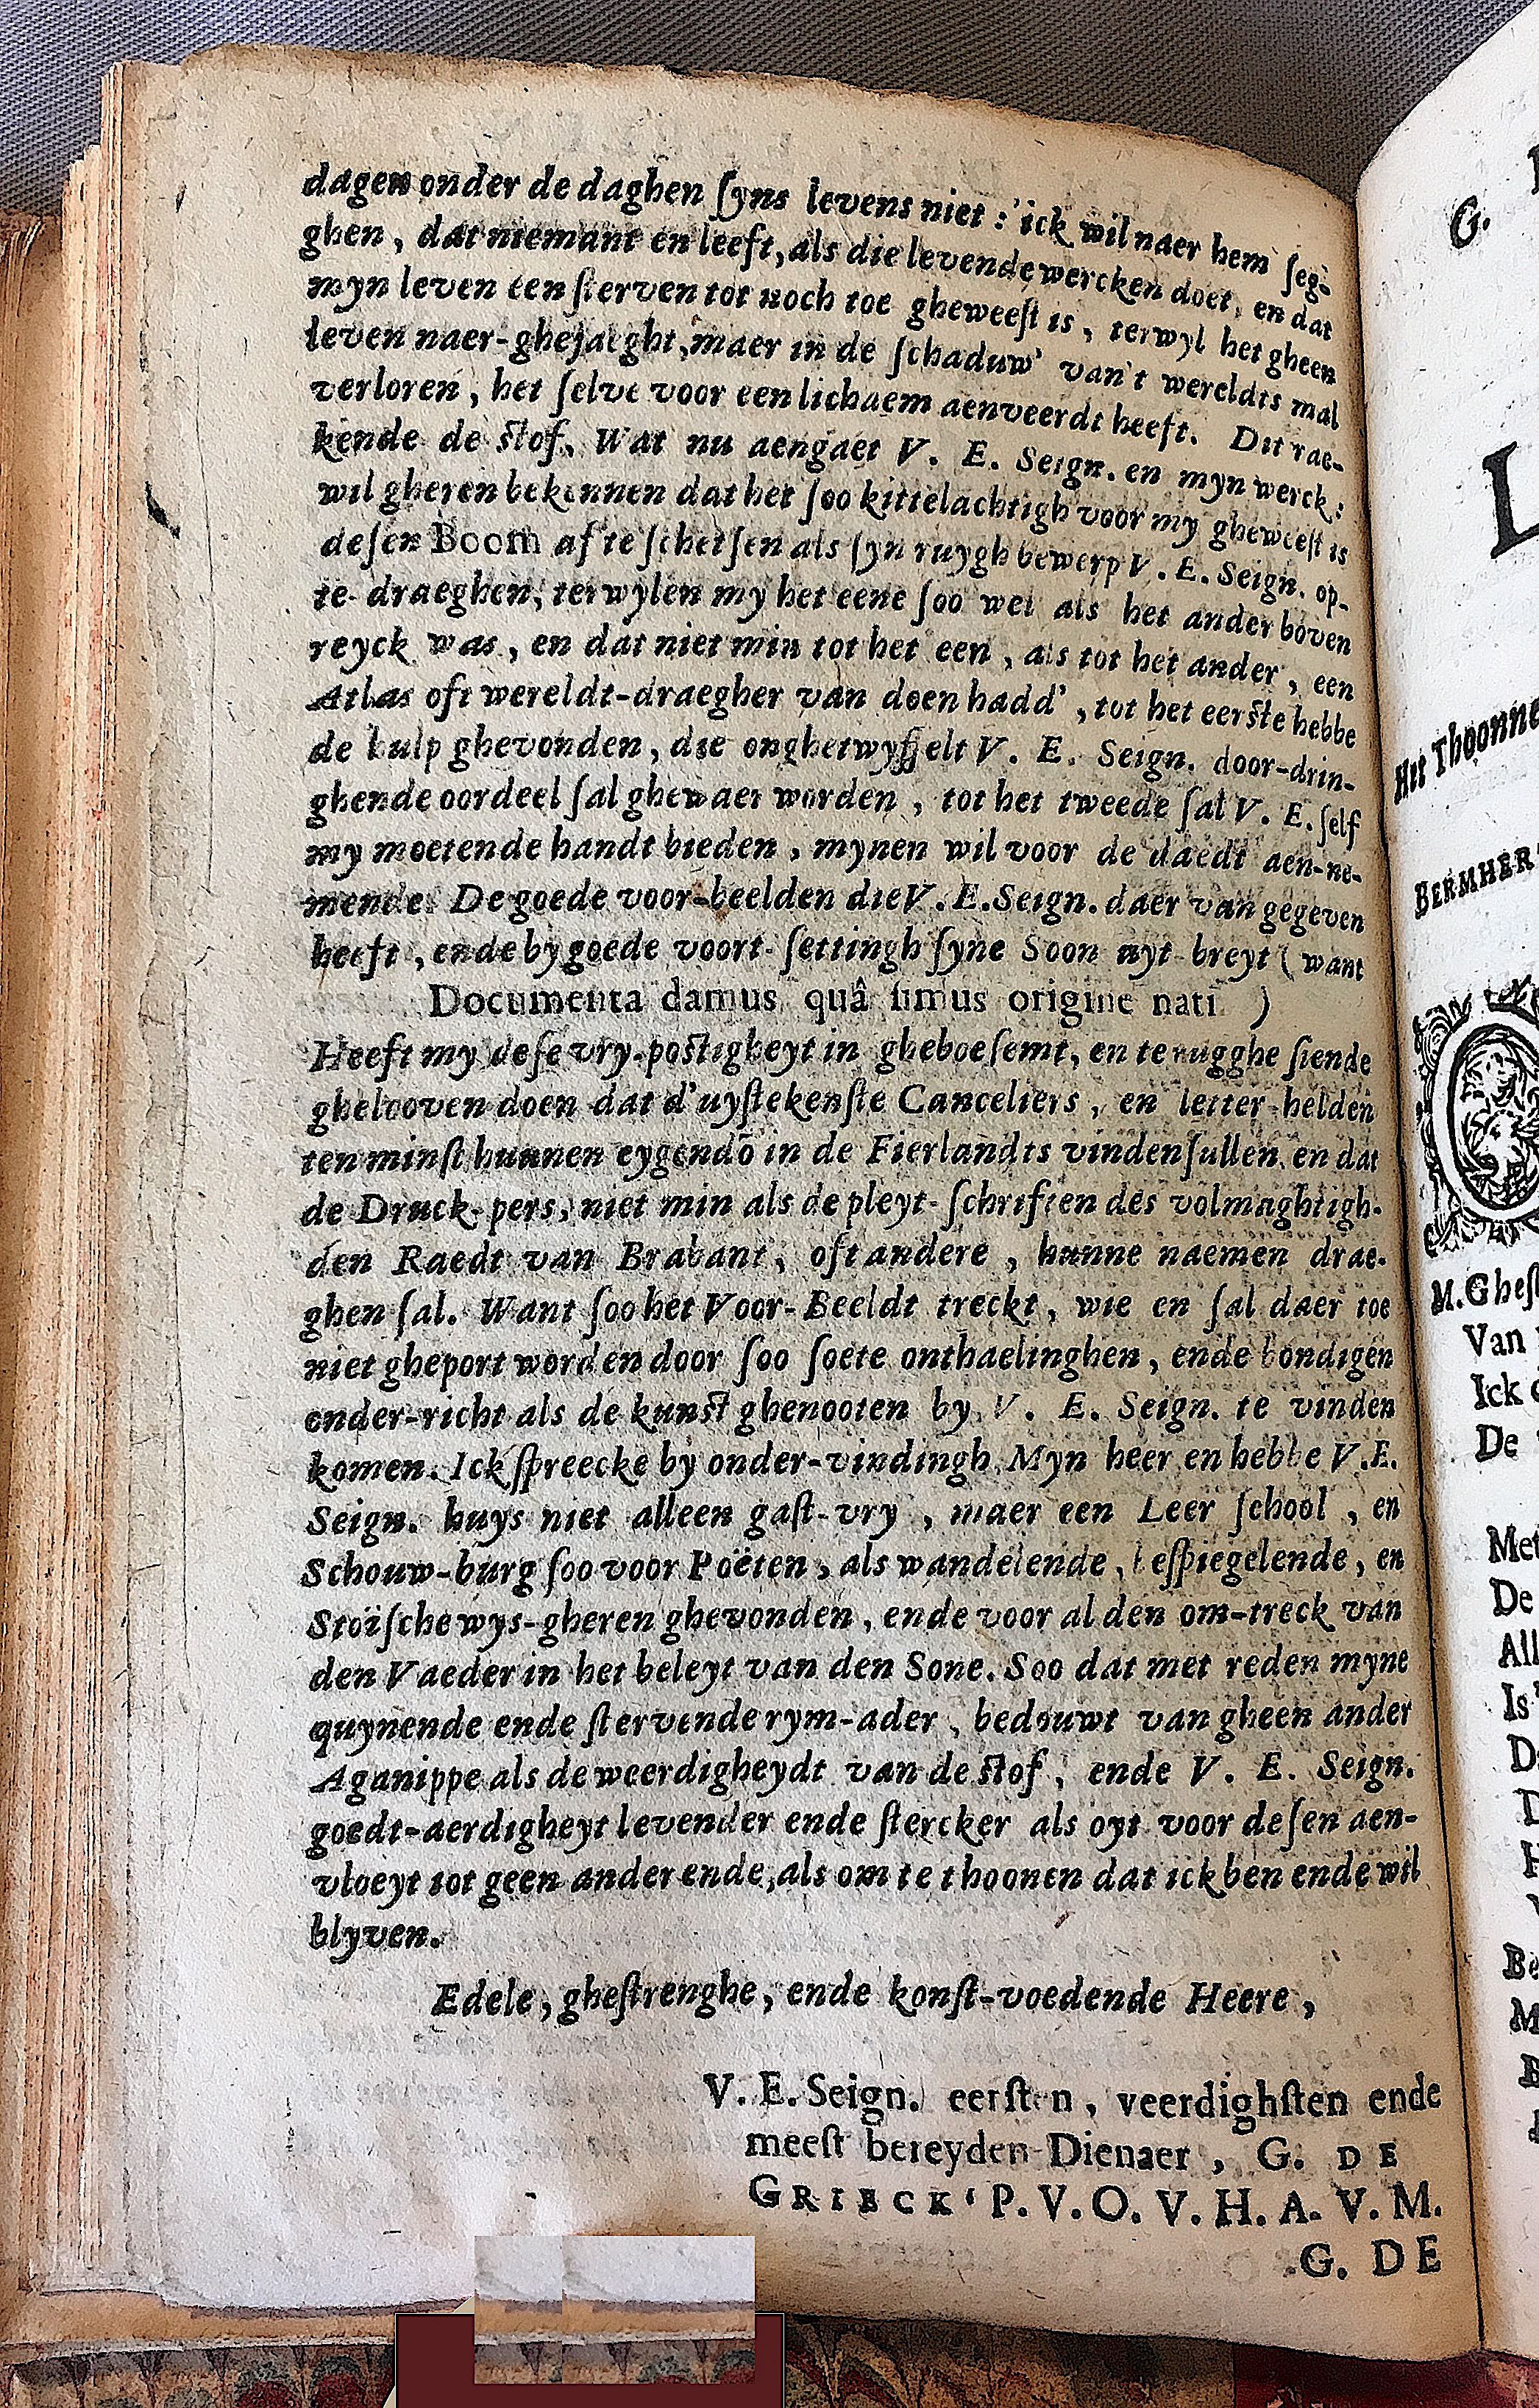 dagen onder de daghen ſyns levens niet : ick wil naer hem ſeg-
ghen , dat niemant en leeft, als die levende wercken doet, en dat
myn leven een ſterven tot noch toe gheweeſt is , terwyl het gheen
leven naer-ghejaeght, maer in de ſchaduw' van't wereldts mal
verloren , het ſelve voor een lichaem aenveerdt heeft. Dit rae-
kende de ſtof. Wat nu aengaet V. E. Seign. en myn werck :
wil gheren bekennen dat het ſoo kittelachtigh voor my gheweeſt is
deſen Boom af te ſchetſen als ſyn ruygh bewerp V. E. Seign. op-
te-draeghen, terwylen my het eene ſoo wel als het ander boven
reyck was, en dat niet min tot het een , als tot het ander , een
Atlas oft wereldt-draegher van doen hadd' , tot het eerſte hebbe
de hulp ghevonden, die onghetwyffelt V. E. Seign. door-drin-
ghende oordeel ſal ghewaer worden , tot het tweede ſal V. E. ſelf
my moetende handt bieden , mynen wil voor de daedt aen-ne-
mende. De goede voor-beelden die V. E. Seign. daer van gegeven
heeft , ende by goede voort-ſettingh ſyne Soon uyt-breyt ( want
Documenta damus quâ ſimus origine nati )
Heeft my deſe vry-poſtigheyt in gheboeſemt, en te rugghe ſiende
ghelooven doen dat d'uyſtekenſte Canceliers , en letter-helden
ten minſt hunnen eygendõ in de Fierlandts vinden ſullen, en dat
de Druck-pers, niet min als de pleyt-ſchriften des volmaghtigh-
den Raedt van Brabant, oft andere , hunne naemen drae-
ghen ſal. Want ſoo het Voor-Beeldt treckt, wie en ſal daer toe
niet gheport worden door ſoo ſoete onthaelinghen, ende bondigen
onder-richt als de kunſt ghenooten by V. E. Seign. te vinden
komen. Ick ſpreecke by onder-vindingh Myn heer en hebbe V.E.
Seign. huys niet alleen gaſt-vry , maer een Leer ſchool , en
Schouw-burg ſoo voor Poëten, als wandelende, beſpiegelende, en
Stoïſche wys-gheren ghevonden, ende voor al den om-treck van
den Vaeder in het beleyt van den Sone. Soo dat met reden myne
quynende ende ſtervende rym-ader , bedouwt van gheen ander
Aganippe als de weerdigheydt van de ſtof , ende V. E. Seign.
goedt-aerdigheyt levender ende ſtercker als oyt voor deſen aen-
vloeyt tot geen ander ende, als om te thoonen dat ick ben ende wil
blyven.
Edele, gheſtrenghe, ende konſt-voedende Heere,
V. E. Seign. eerſten, veerdighſten ende
meeſt bereyden Dienaer , G. DE
GRIECK' P. V. O. V. H. A. V. M.
G. DE
G.
L
Het Thoonne
BERMHER
M. Gheſ
Van
Ick
De
Met
De
All
Is